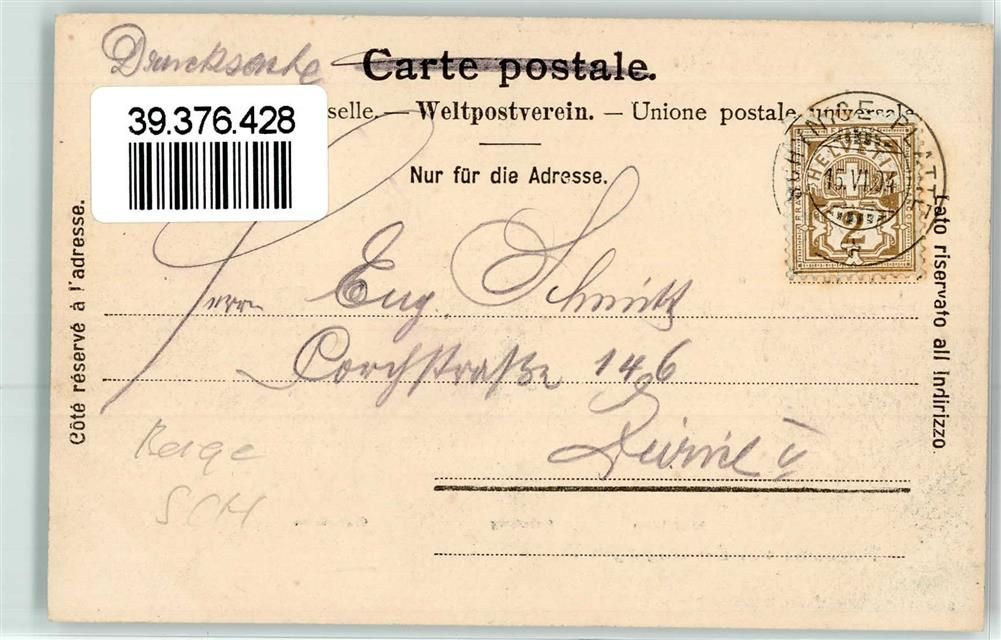 Drucksache
Carte postale.
39.376.428
selle. — Weltpostverein. — Unione postale universale
Nur für die Adresse.
SCHYNIGE PLATTE
15.VI.04
HELVETIA
FRANCO
2
Côté réservé à l'adresse.
Lato riservato all indirizzo.
Herrn Eug. Schmitt
146
Zürich V
Berge
SCH